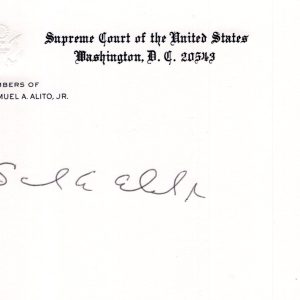 Supreme Court of the United States
Washington, D. C. 20543
MBERS OF
MUEL A. ALITO, JR.